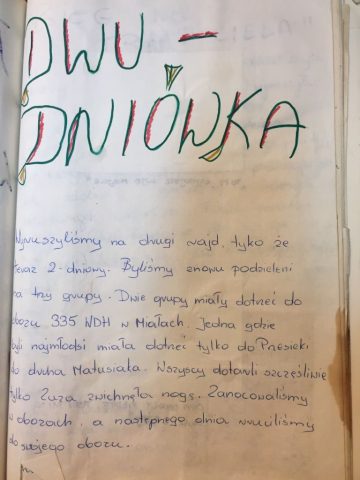 DWU -
DNIÓWKA
Wyruszyliśmy na drugi rajd, tyko że
teraz 2-dniowy. Byliśmy znowu podzieleni
na trzy grupy. Dwie grupy miały dotrzeć do
obozu 335 WDH w Miałach. Jedna gdzie
byli najmłodsi miała dotrzeć tylko do Przesieki
do druha Matusiaka. Wszyscy dotarli szczęśliwie
tylko Zuza zwichnęła nogę. Zanocowaliśmy
w obozach, a następnego dnia wruciliśmy
do swojego obozu.